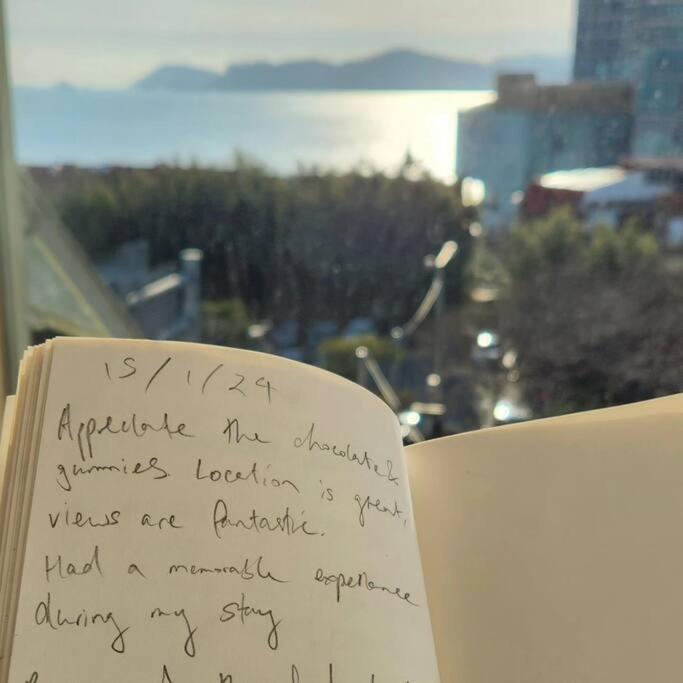 15/1/24
Appreciate the chocolate &
gummies. Location is great,
views are fantastic.
Had a memorable experience
during my stay